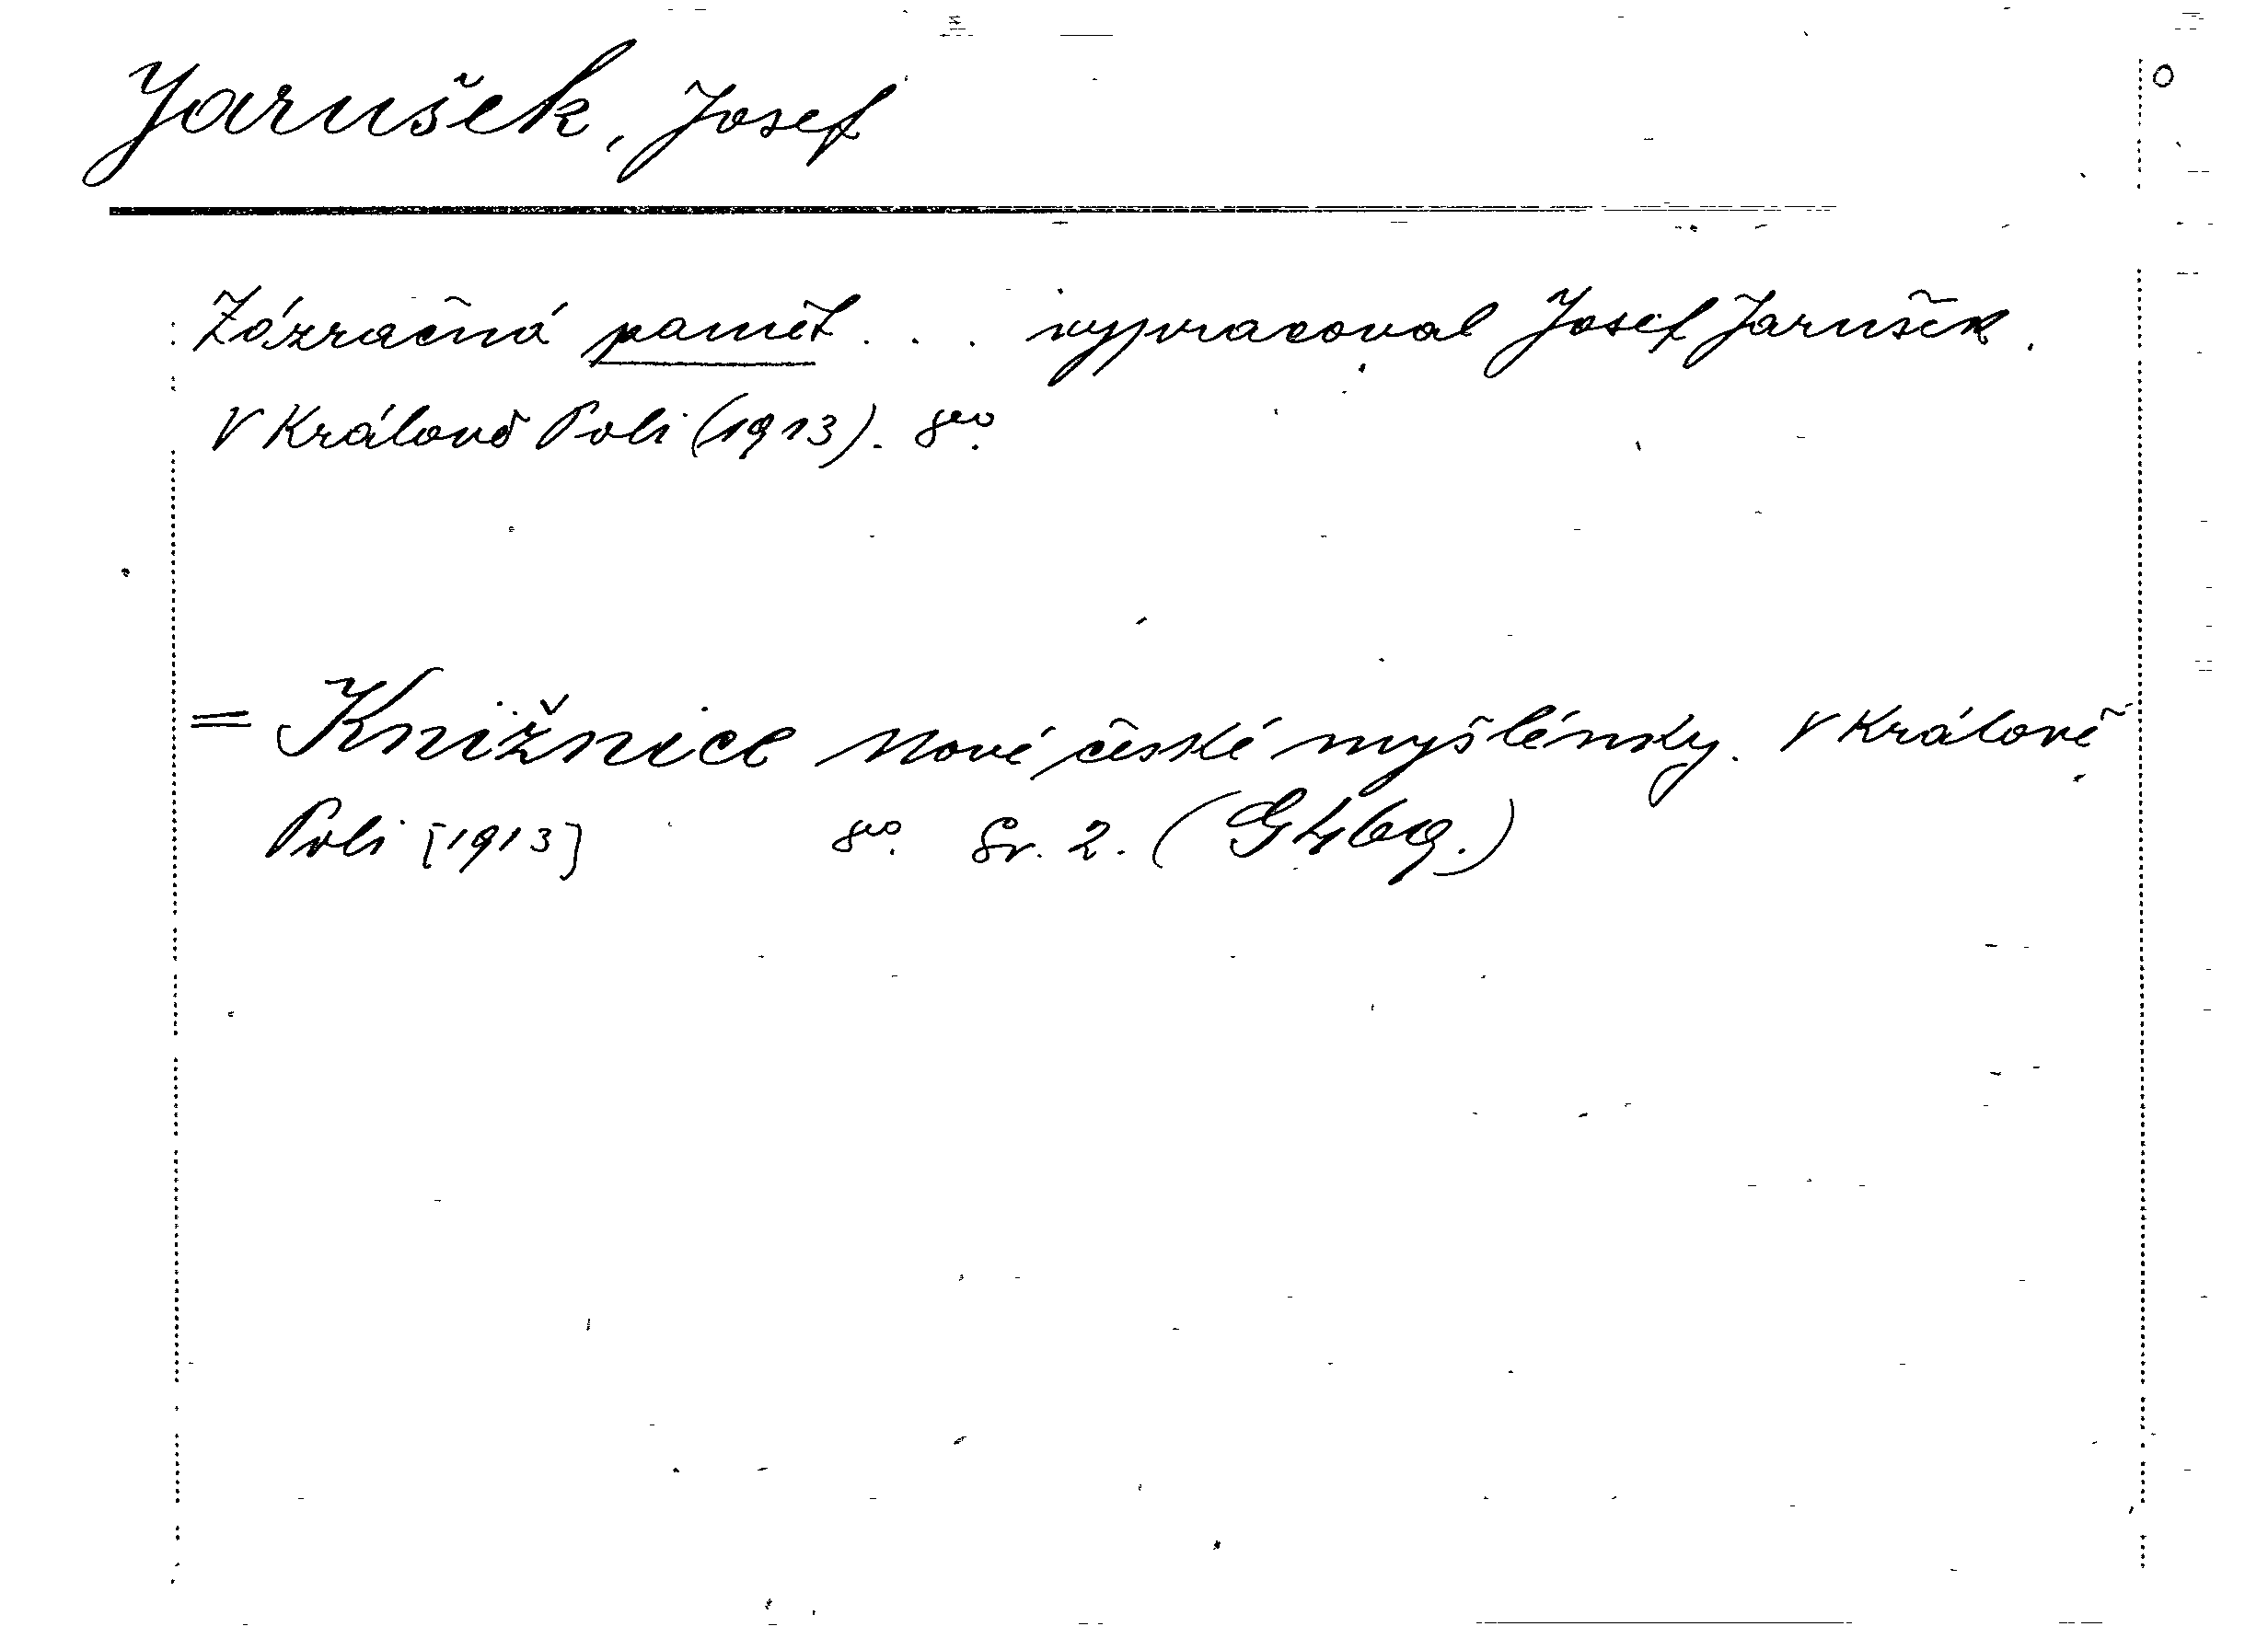 Jarušek, Josef
Zázračná paměť . . . vypracoval Josef Jarušek.
V Králově Poli (1913). 8vo.
= Knižnice Nové české myšlénky. V Králově
Poli [1913] 8vo. Sv. 2. (G 4669.)